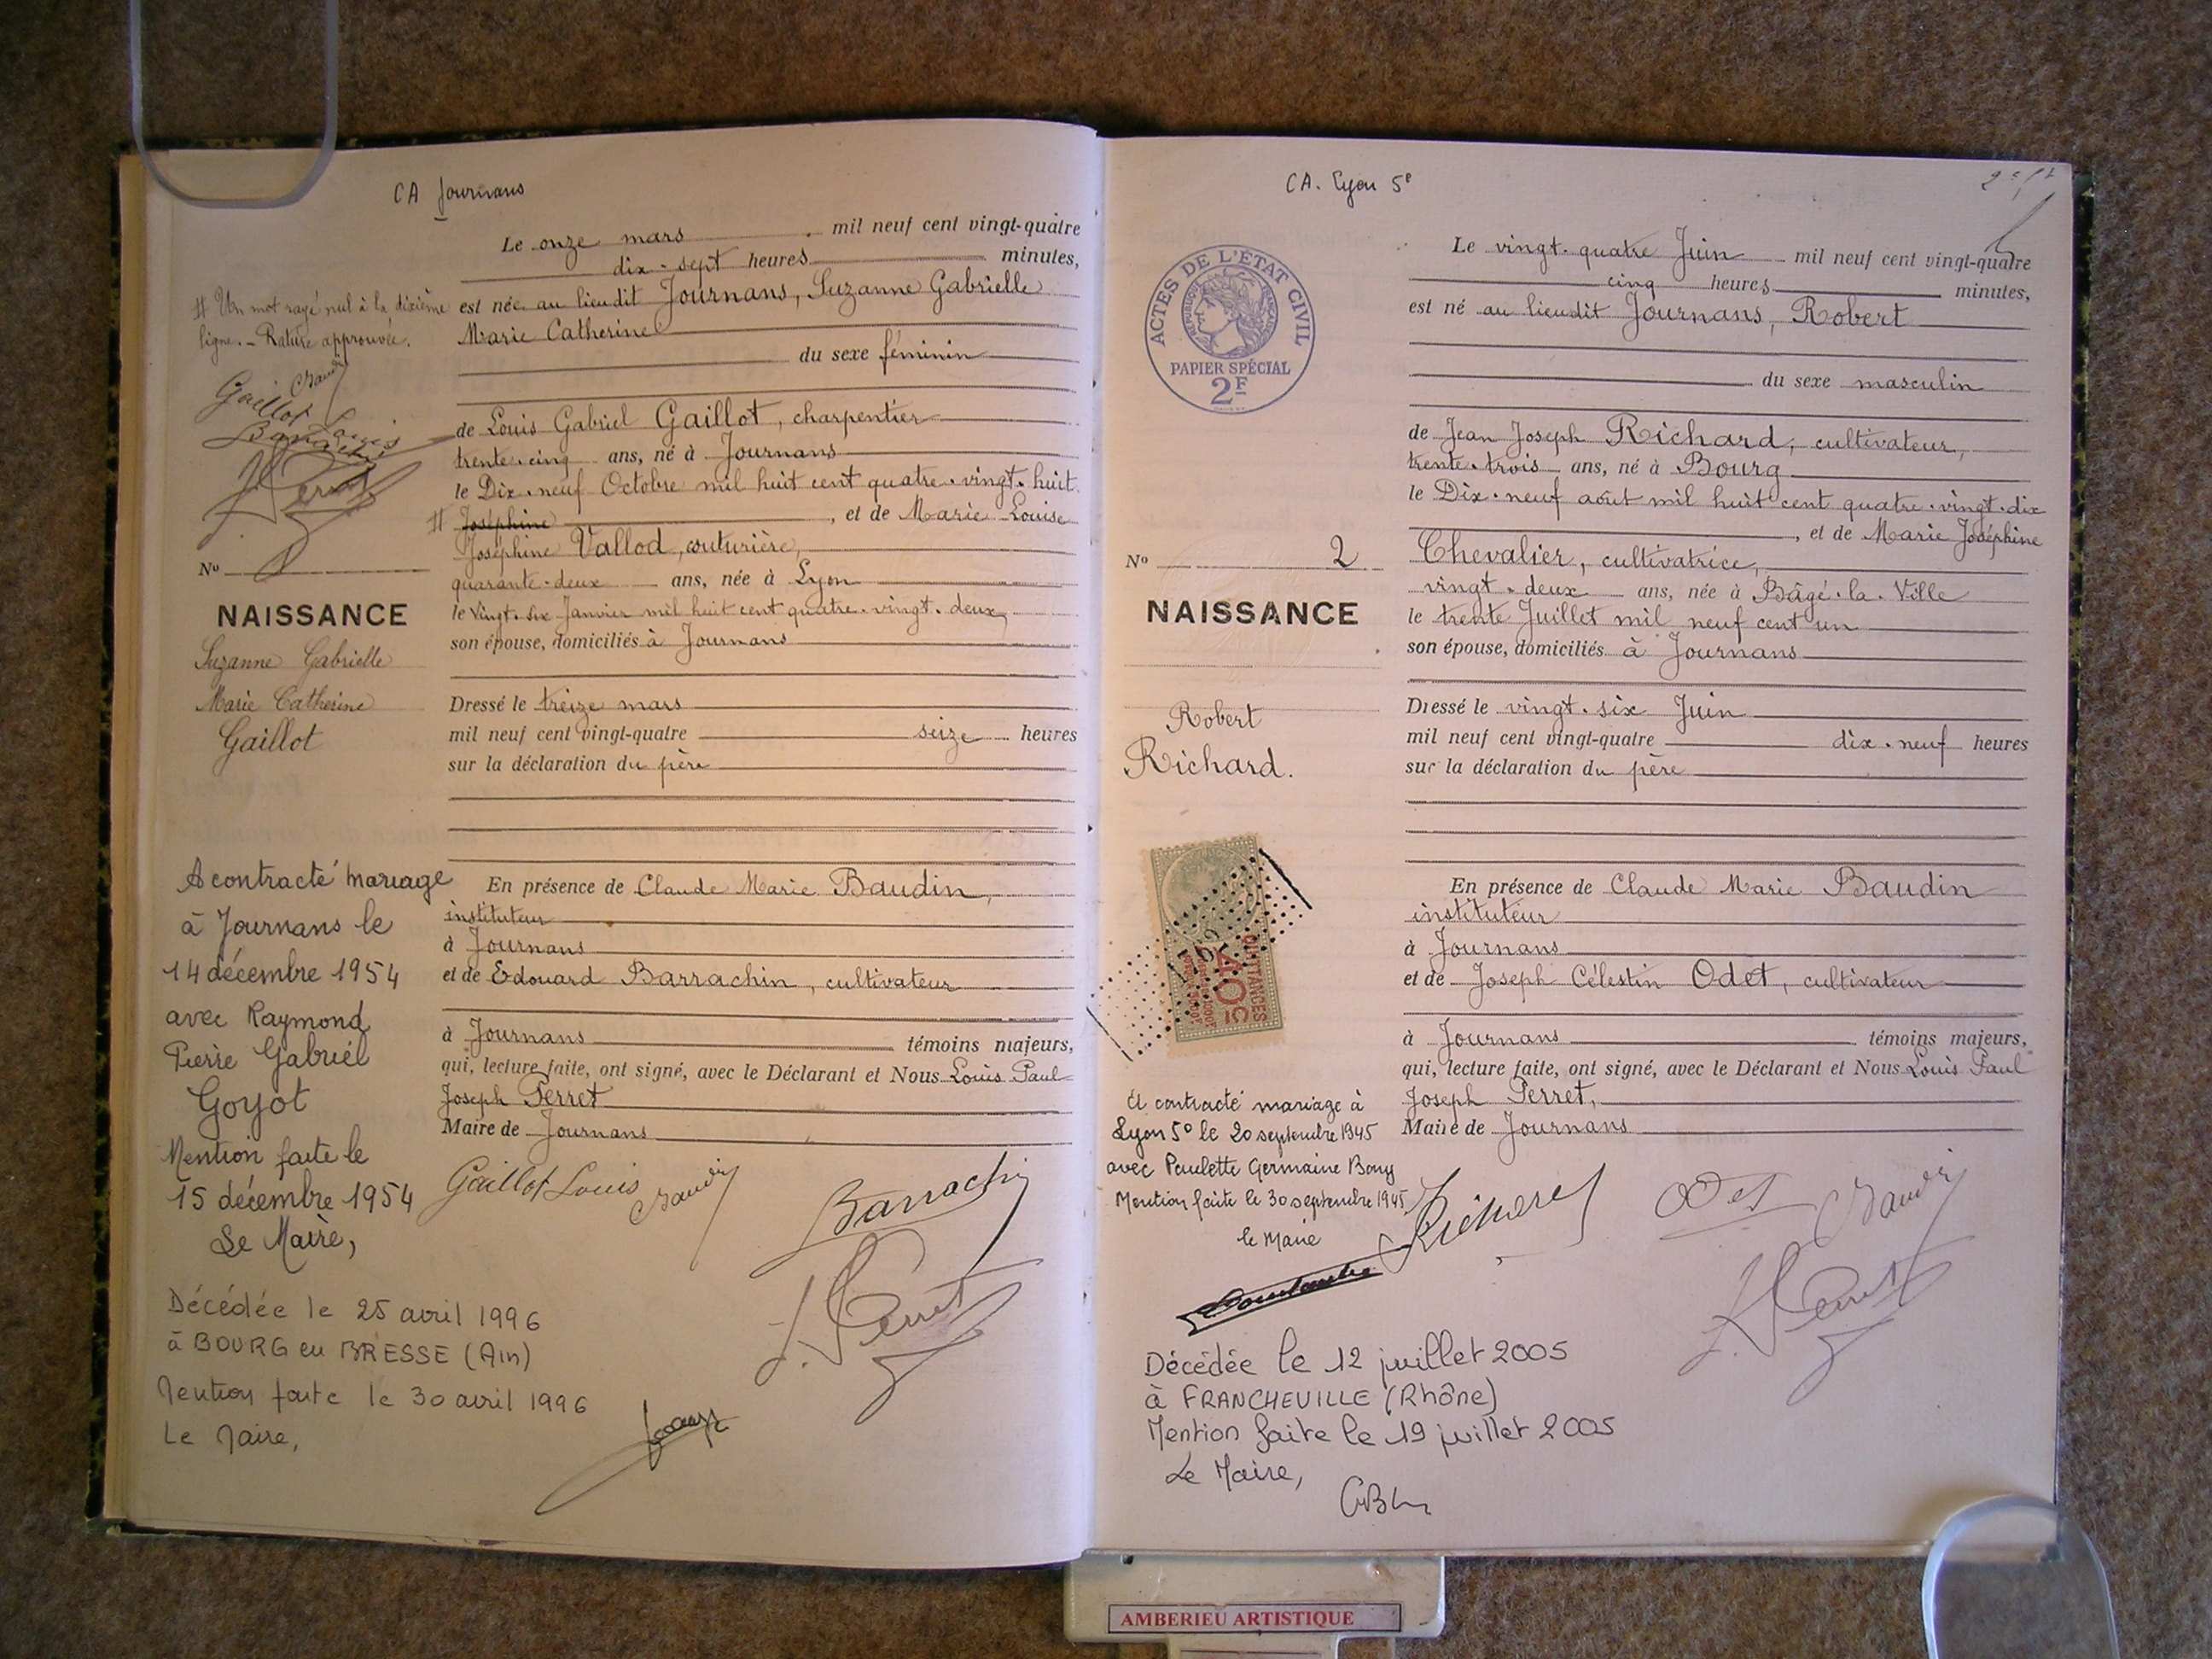 CA Journans
Le onze mars mil neuf cent vingt-quatre
dix-sept heures minutes,
est née au lieu dit Journans, Suzanne Gabrielle
Marie Catherine
du sexe féminin
de Louis Gabriel Gaillot, charpentier
trente-cinq ans, né à Journans
le Dix-neuf Octobre mil huit cent quatre-vingt-huit
# Joséphine, et de Marie Louise
Joséphine Vallod, couturière,
quarante-deux ans, née à Lyon
le Vingt-six Janvier mil huit cent quatre-vingt-deux,
son épouse, domiciliés à Journans
Dressé le treize mars
mil neuf cent vingt-quatre seize heures
sur la déclaration du père
En présence de Claude Marie Baudin,
instituteur
à Journans
et de Edouard Barrachin, cultivateur
à Journans témoins majeurs,
qui, lecture faite, ont signé, avec le Déclarant et Nous Louis Paul
Joseph Perret
Maire de Journans
Gaillot Louis Baudin Barrachin
J. Perret
# Un mot rayé nul à la dixième
ligne. - Rature approuvée.
Baudin
Gaillot Louis
Barrachin
J. Perret
No 1
NAISSANCE
Suzanne Gabrielle
Marie Catherine
Gaillot
A contracté mariage
à Journans le
14 décembre 1954
avec Raymond
Pierre Gabriel
Goyot
Mention faite le
15 décembre 1954
Le Maire,
Décédée le 25 avril 1996
à BOURG en BRESSE (Ain)
Mention faite le 30 avril 1996
Le Maire,
CA. Lyon 5e
Le vingt-quatre Juin mil neuf cent vingt-quatre
cinq heures minutes,
est né au lieu dit Journans, Robert
du sexe masculin
de Jean Joseph Richard, cultivateur,
trente-trois ans, né à Bourg
le Dix-neuf août mil huit cent quatre-vingt-dix
, et de Marie Joséphine
Chevalier, cultivatrice,
vingt-deux ans, née à Bâgé-la-Ville
le trente Juillet mil neuf cent un
son épouse, domiciliés à Journans
Dressé le vingt-six Juin
mil neuf cent vingt-quatre dix-neuf heures
sur la déclaration du père
En présence de Claude Marie Baudin
instituteur
à Journans
et de Joseph Célestin Odet, cultivateur
à Journans témoins majeurs,
qui, lecture faite, ont signé, avec le Déclarant et Nous Louis Paul
Joseph Perret,
Maire de Journans
Richard Odet Baudin
J. Perret
ACTES DE L'ÉTAT CIVIL
RÉPUBLIQUE FRANÇAISE
PAPIER SPÉCIAL
2F
No 2
NAISSANCE
Robert
Richard.
QUITTANCES
40c
A contracté mariage à
Lyon 5° le 20 septembre 1945
avec Paulette Germaine Bony
Mention faite le 30 septembre 1945
le Maire
Décédée le 12 juillet 2005
à FRANCHEVILLE (Rhône)
Mention faite le 19 juillet 2005
Le Maire,
AMBERIEU ARTISTIQUE